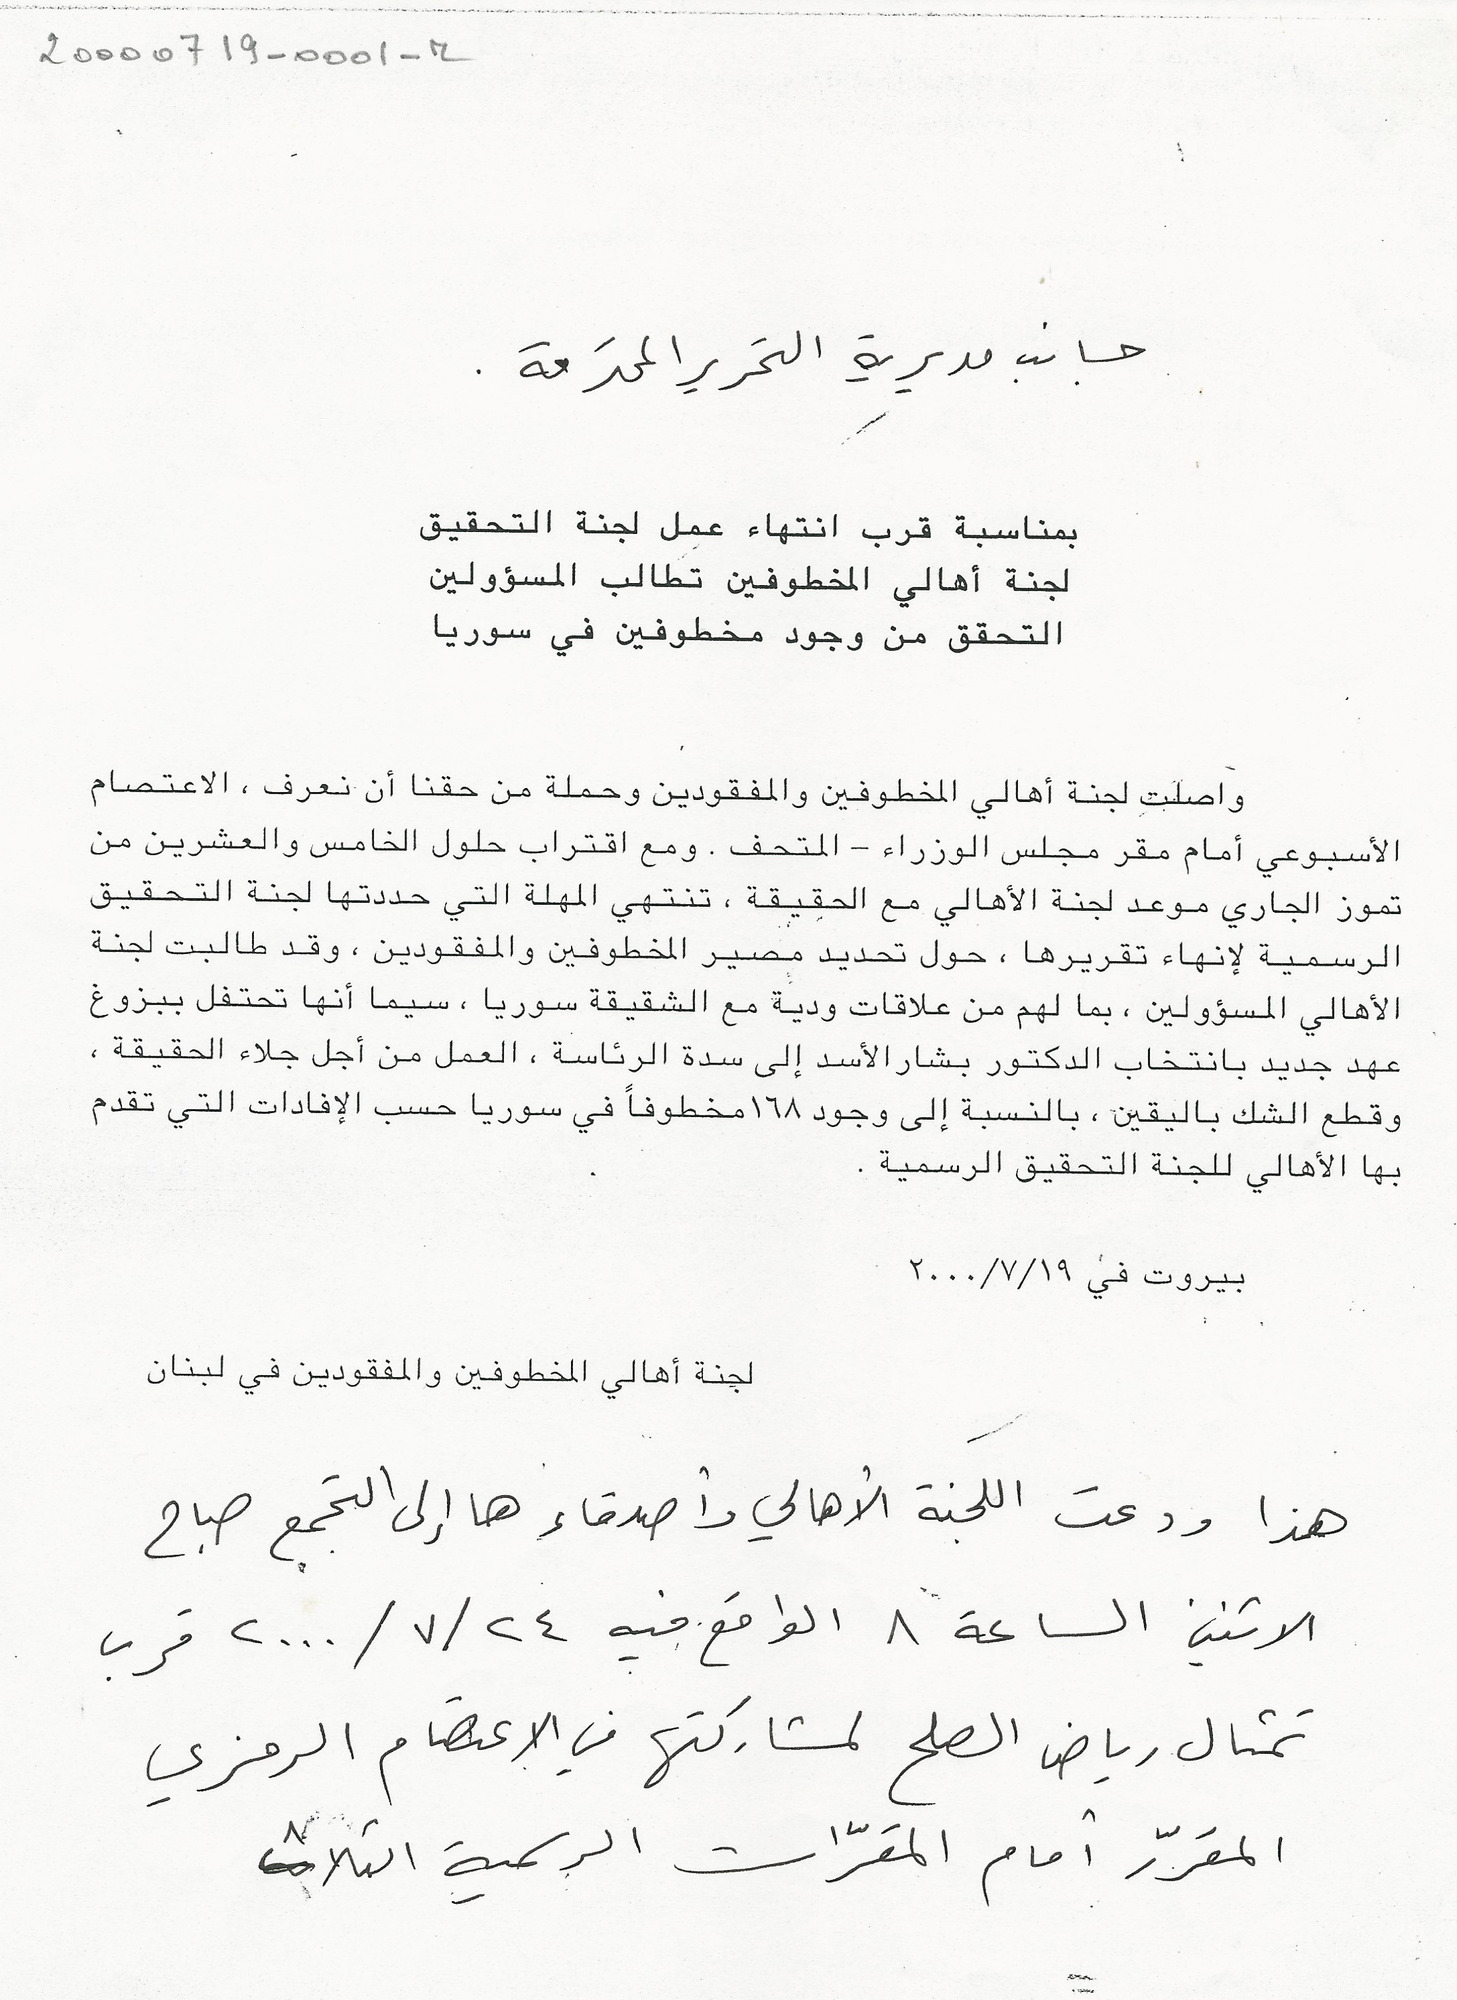 20000719-0001-M
جانب مديرية التحرير المحترمة .
بمناسبة قرب انتهاء عمل لجنة التحقيق
لجنة أهالي المخطوفين تطالب المسؤولين
التحقق من وجود مخطوفين في سوريا
واصلت لجنة أهالي المخطوفين والمفقودين وحملة من حقنا أن نعرف ، الاعتصام
الأسبوعي أمام مقر مجلس الوزراء – المتحف . ومع اقتراب حلول الخامس والعشرين من
تموز الجاري موعد لجنة الأهالي مع الحقيقة ، تنتهي المهلة التي حددتها لجنة التحقيق
الرسمية لإنهاء تقريرها ، حول تحديد مصير المخطوفين والمفقودين ، وقد طالبت لجنة
الأهالي المسؤولين ، بما لهم من علاقات ودية مع الشقيقة سوريا ، سيما أنها تحتفل ببزوغ
عهد جديد بانتخاب الدكتور بشار الأسد إلى سدة الرئاسة ، العمل من أجل جلاء الحقيقة ،
وقطع الشك باليقين ، بالنسبة إلى وجود ١٦٨ مخطوفاً في سوريا حسب الإفادات التي تقدم
بها الأهالي للجنة التحقيق الرسمية .
بيروت في ٢٠٠٠/٧/١٩
لجنة أهالي المخطوفين والمفقودين في لبنان
هذا ودعت اللجنة الأهالي وأصدقاءها إلى التجمع صباح
الاثنين الساعة ٨ الواقع فيه ٢٤ /٧/ ٢٠٠٠ قرب
تمثال رياض الصلح لمشاركتها في الإعتصام الرمزي
المقرّر أمام المقرّات الرسمية الثلاث